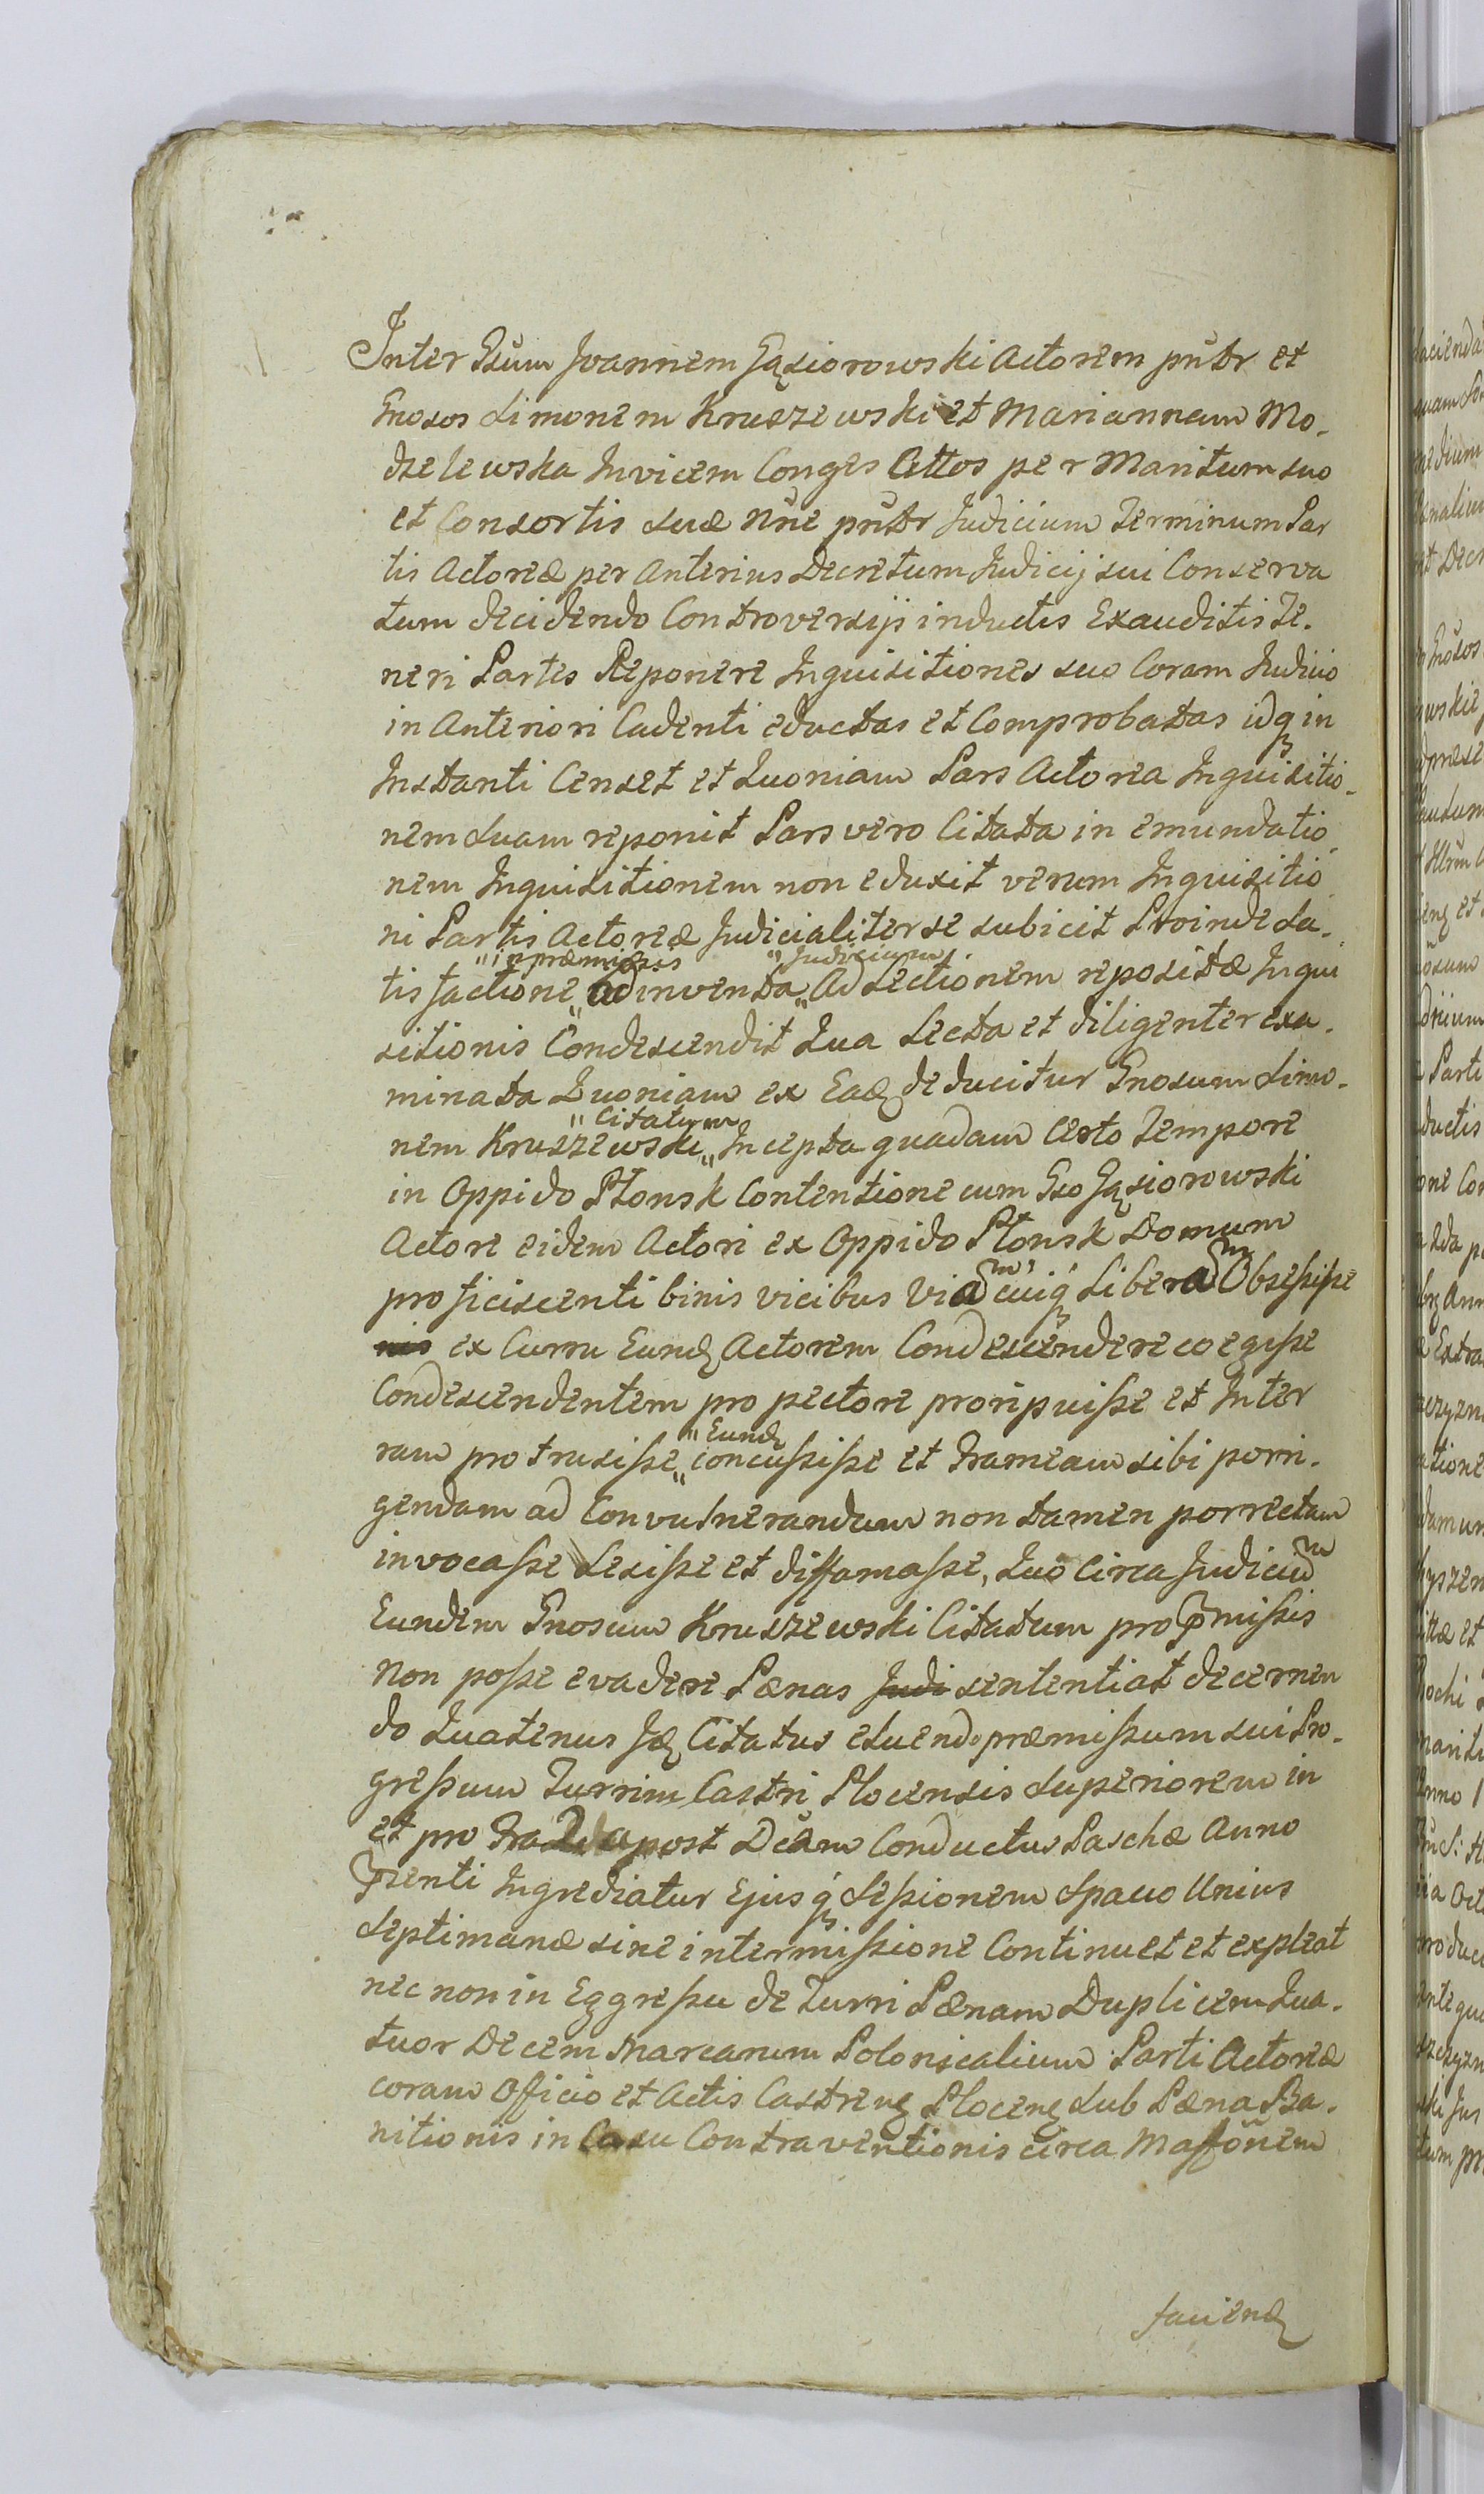 Inter Gsum Joannem Gąsiorowski Actorem pnttr et
Gnosos Simonem Kruszewski et Mariannam Mo-
dzelewska Invicem Conges Cittos per Maritum suo
et Consortis suæ Nñe pnttr Judicium Terminum Par
tis Actoreæ per Anterius Decretum Judicij sui Conserva
tum decidendo Controversijs inductis Exauditis Te-
neri Partes Reponere Inquisitiones suo Coram Judicio
in Anteriori Cadenti eductas et Comprobatas idq in
Instanti Censet et Quoniam Pars Actorea Inquisitio-
nem Suam reponit Pars vero Citata in emundatio-
nem Inquisitionem non eduxit verum Inquisitio
ni Partis Actoreæ Judicialiter se subicit Proinde Sa-
"in præmissis "Judicium
tisfactione „ adinventa „ Ad Lectionem repositæ Inqui
sitionis Condescendit Qua Lecta et diligenter exa-
minata Quoniam ex Eadę deducitur Gnosum Simo-
"Citatum
nem Kruszewski „ Incepta quadam Certo Tempore
in Oppido Płonsk Contentione cum Gso Gąsiorowski
Actore eidem Actori ex Oppido Płonsk Domum
proficiscenti binis vicibus Viam cuiq Liberam Obsesisse
nis ex Curru Eundę Actorem Condescendere coegisse
Condescendentem pro pectore proripuisse et In ter
"Eundę
ram protrusisse „ concussisse et Frameam sibi porri-
gendam ad Convulnerandum non tamen porrectam
invocasse Lesisse et diffamasse, Quo Circa Judicium
Eundem Gnosum Kruszewski Citatum pro pmissis
Non posse evadere Pænas Judi sententiat decernen
do Quatenus Idę Citatus eluendo præmissum sui Pro-
gressum Turrim Castri Plocensis Superiorem in
et pro post Dcam Conductus Paschæ Anno
psenti Ingrediatur Ejusq Sessionem Spatio Unius
Septimanæ sine intermissione Continuet et expleat
nec non in Eggressu de Turri Pænam Duplicem Qua-
tuor Decem Marcarum Polonicalium Parti Actoreæ
coram Officio et Actis Castrenę Plocenę Sub Pæna Ba-
nitionis in Casu Contraventionis circa Maffonem
faciendę